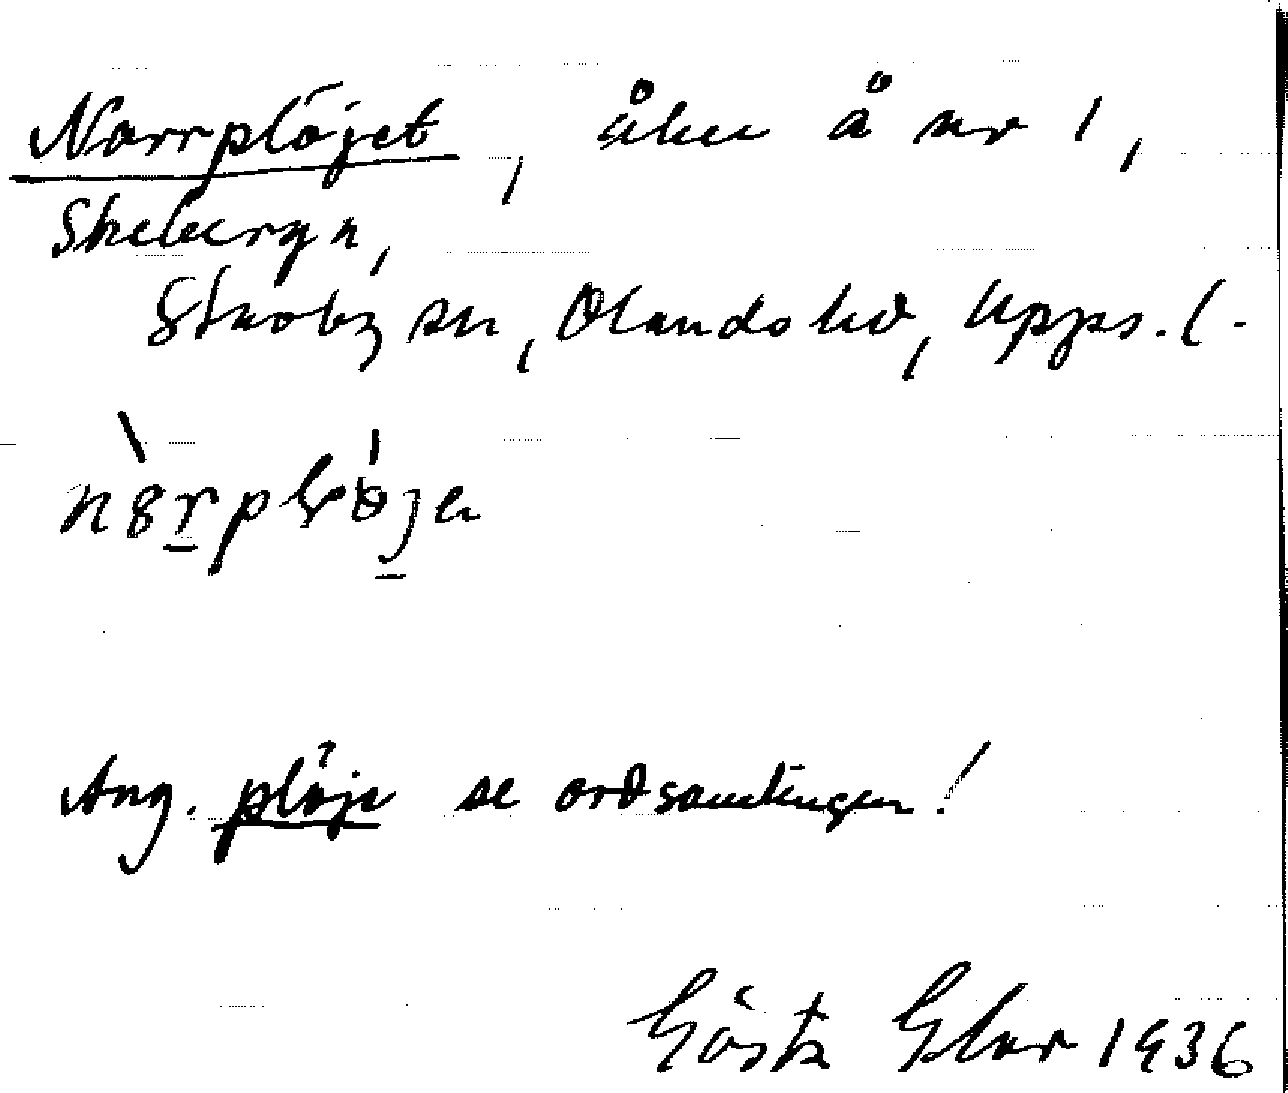 Norrplöjet, åker å nr 1,
Skebergn,
Skuoby sn, Olands hd, Upps. l.
Ang. plöje se ordsamlingen!
Gösta Elar 1936